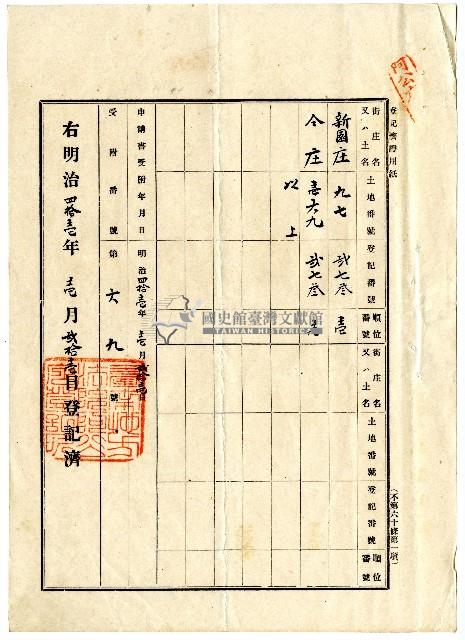 登記濟證用紙
街庄名又ハ土名 土地番號 登記番號 順位番號 街庄名又ハ土名 土地番號 登記番號 順位番號
新園庄 九七 貳七叁 壹
仝庄 壹六九 貳七叁
以上
申請書受附年月日 明治四拾壹年壹月
受附番號 第六九號
右明治四拾壹年壹月貳拾壹日登記濟
國史館臺灣文獻館
TAIWAN HISTORICA